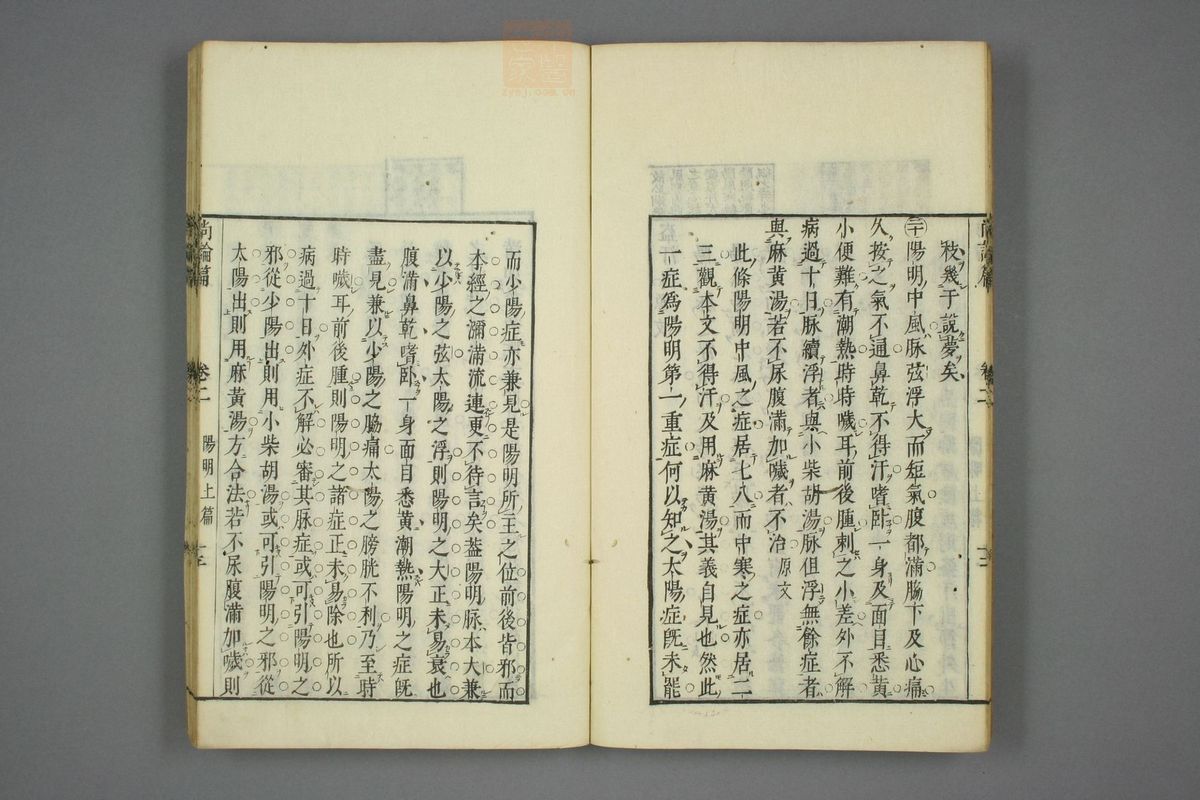 秡幾于說夢矣
二十陽明中風脉弦浮大而短氣腹都滿脇下及心痛
久按之氣不通鼻乾不得汗嗜卧一身及面目悉黃
小便難有潮熱時時噦耳前後腫刺之小差外不解
病過十日脉續浮者與小柴胡湯脉但浮無餘症者
與麻黃湯若不尿腹滿加噦者不治原文
此條陽明中風之症居七八而中寒之症亦居二
三觀本文不得汗及用麻黃湯其義自見也然此
一症爲陽明第一重症何以知之太陽症旣未能
而少陽症亦兼見是陽明所主之位前後皆邪而
本經之瀰滿流連更不待言矣葢陽明脉本大兼
以少陽之弦太陽之浮則陽明之大正未易衰也
腹滿鼻乾嗜卧一身面目悉黃潮熱陽明之症旣
盡見兼以少陽之脇痛太陽之膀胱不利乃至時
時噦耳前後腫則陽明之諸症正未易除也所以
病過十日外症不解必審其脉症或可引陽明之
邪從少陽出則用小柴胡湯或可引陽明之邪從
太陽出則用麻黃湯方合法若不尿腹滿加噦則
尚論篇
卷二
陽明上篇
十三
家醫
zysj.com.cn